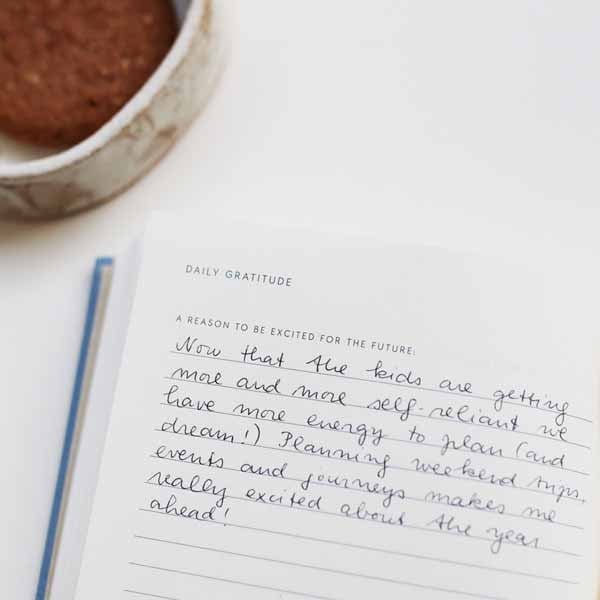 DAILY GRATITUDE
A REASON TO BE EXCITED FOR THE FUTURE:
Now that the kids are getting
more and more self-reliant we
have more energy to plan (and
dream!) Planning weekend trips,
events and journeys makes me
really excited about the year
ahead!